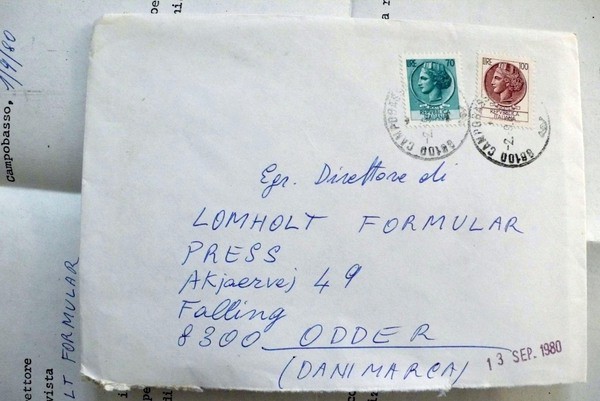 Egr. Direttore di
LOMHOLT FORMULAR
PRESS
Akjaervej 49
Falling
8300 ODDER
(DANIMARCA)
13 SEP. 1980
LIRE 70
LIRE 100
86100 CAMPOBASSO
86100 CAMPOBAS
Campobasso, 1/9/80
ettore
vista
LT FORMULAR